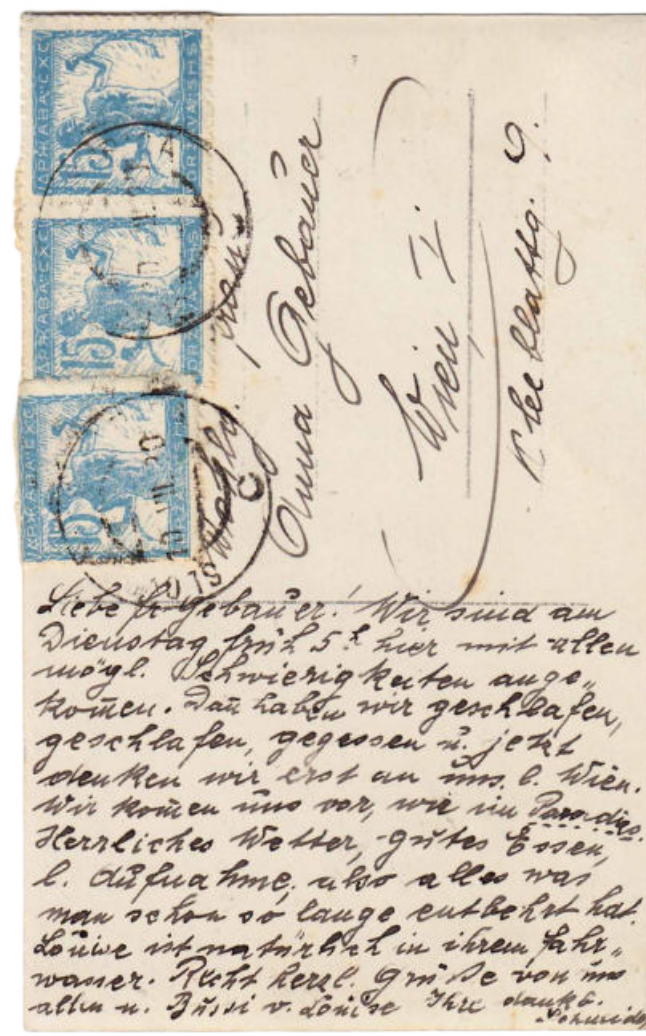 Wohlg.
Anna Gebauer
Wien, I.
Kleeblattg. 9.
Liebe Fr. Gebauer! Wir sind am
Dienstag früh 5h hier mit allen
mögl. Schwierigkeiten ange„
kom̄en. Dan̄ haben wir geschlafen,
geschlafen, gegessen u. jetzt
denken wir erst an uns. l. Wien.
Wir kom̄en uns vor, wie im Paradies.
Herrliches Wetter, gutes Essen,
l. Aufnahme, also alles was
man schon so lange entbehrt hat.
Louise ist natürlich in ihrem Fahr„
wasser. Recht herzl. Grüße von uns
allen u. Bussi v. Louise Ihre dankb.
15
15
15